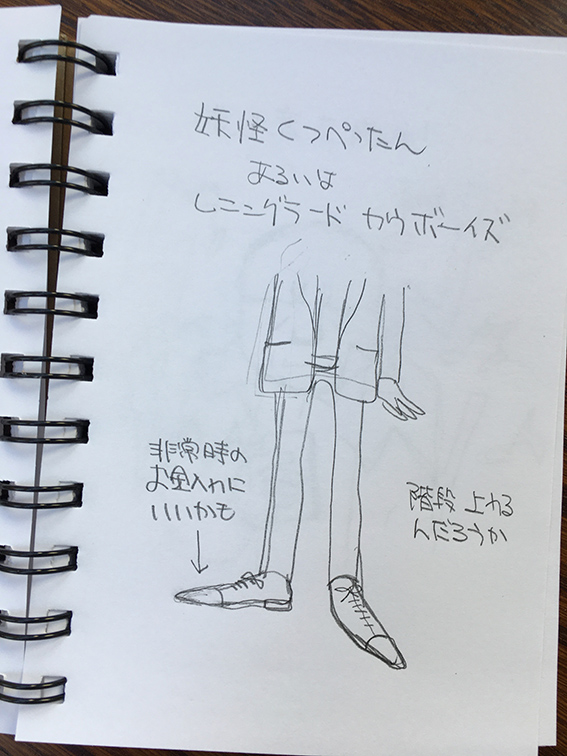 妖怪くつぺったん
あるいは
レニングラード カウボーイズ
非常時の
お金入れに
いいかも
階段上れる
んだろうか